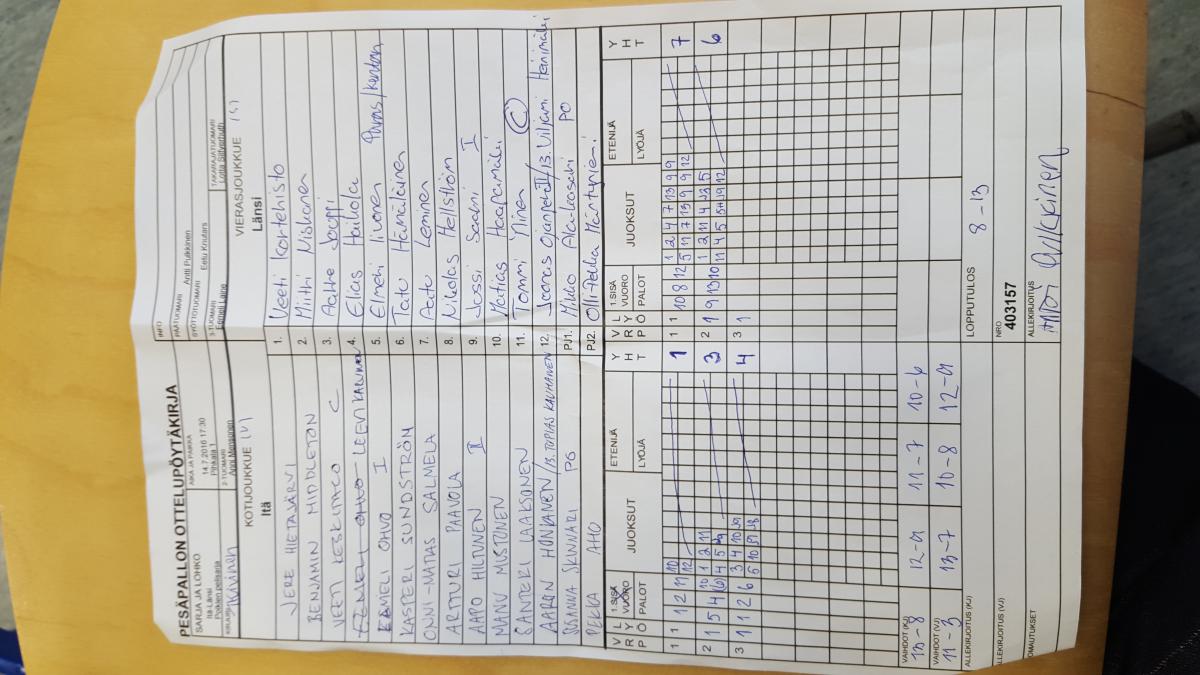 PESÄPALLON OTTELUPÖYTÄKIRJA
INFO
SARJA JA LOHKO
Itä-Länsi
Poikien pelisarja
AIKA JA PAIKKA
14.7.2016 17:30
Pihkala 1
PÄÄTUOMARI
Antti Pulkkinen
SYÖTTÖTUOMARI
Eetu Knutars
2-TUOMARI
3-TUOMARI
Eemeli Laine
TAKARAJATUOMARI
Lotta Silfverhuth
KOTIJOUKKUE (U)
Itä
VIERASJOUKKUE (S)
Länsi
JERE HIETAJÄRVI
1. Veeti Kortehisto
BENJAMIN MIDDLETON
2. Miithi Niskanen
VEETI KESKIMÄKI C
3. Aatte Jouppi
LEEVI KARJULA
4. Elias Haikola
EEMELI OHVO I
5. Elmeri Iivonen Paras/kentän
KASPERI SUNDSTRÖM
6. Tatu Hämäläinen
ONNI-MATIAS SALMELA
7. Aatu Leminen
ARTTURI PAAVOLA
8. Nikolas Hellström
AAPO HILTUNEN II
9. Jossi Saari I
MANU MUSTONEN
10. Matias Haapamäki
SANTERI LAAKSONEN
11. Tommi Niinen C
AARAN HONKANEN/13. TOPIAS KAUHANEN
12. Joonas Ojanperä II/13. Viljami Hänimäki
SUSANNA SKINNARI PG
PJ1. Mikko Ala-Kasari PO
PEKKA AHO
PJ2. Olli-Pekka Mäntyniemi
V R P
L Y Ö
1.SISÄ VUORO
PALOT
JUOKSUT
ETENIJÄ
LYÖJÄ
Y H T
V R P
L Y Ö
1.SISÄ VUORO
PALOT
JUOKSUT
ETENIJÄ
LYÖJÄ
Y H T
1 1 12 11 10 12 1
1 1 1 10 8 12 1 2 4 7 13 9 9 7
5 11 7 13 9 9 12
2 1 5 4 (6) 10 1 2 11 3
4 4 5
2 1 9 13 10 1 2 11 4 13 5 6
11 4 5
3 1 1 2 6 3 4 10 4
5 10
3 1
VAIHDOT (KJ)
13-8 12-9 11-7 10-6
VAIHDOT (VJ)
11-3 13-7 10-8 12-9
ALLEKIRJOITUS (KJ)
LOPPUTULOS
8-13
ALLEKIRJOITUS (VJ)
NRO
403157
HUOMAUTUKSET
ALLEKIRJOITUS
Antti Pulkkinen